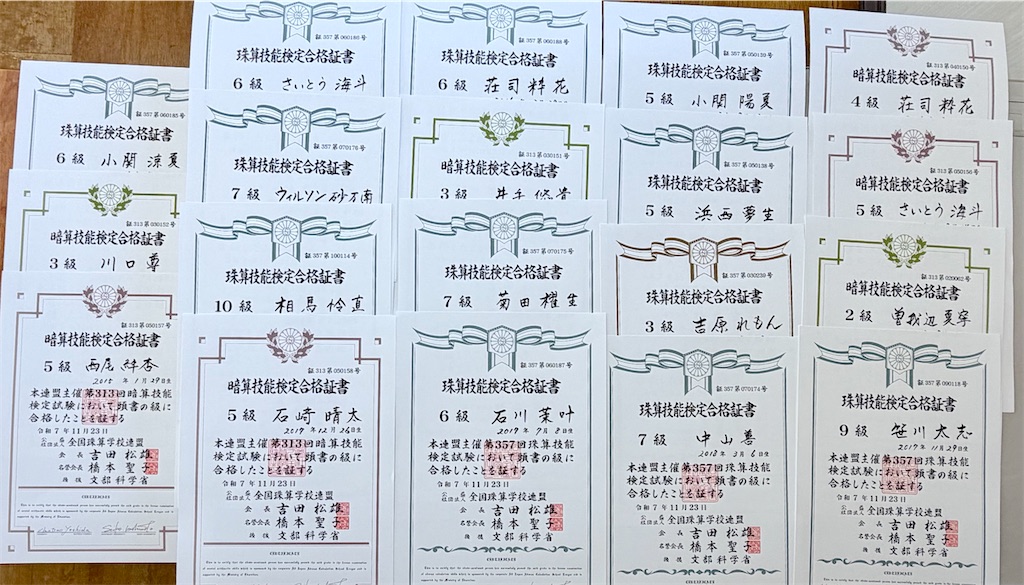 証 357 第 060185 号
珠算技能検定合格証書
6 級 小関 涼夏
証 313 第 030152 号
暗算技能検定合格証書
3 級 川口 尊
証 313 第 050157 号
暗算技能検定合格証書
5 級 西尾 絆杏
2015 年 1 月 29 日生
本連盟主催第313回暗算技能
検定試験において頭書の級に
合格したことを証する
令和 7 年 11 月 23 日
公益社団法人 全国珠算学校連盟
会長 吉田 松雄
名誉会長 橋本 聖子
後援 文部科学省
証 357 第 060186 号
珠算技能検定合格証書
6 級 さいとう 海斗
証 357 第 070176 号
珠算技能検定合格証書
7 級 ウィルソン 砂万南
証 357 第 100114 号
珠算技能検定合格証書
10 級 相馬 怜真
証 313 第 050158 号
暗算技能検定合格証書
5 級 石崎 晴太
2017 年 12 月 26 日生
本連盟主催第313回暗算技能
検定試験において頭書の級に
合格したことを証する
令和 7 年 11 月 23 日
公益社団法人 全国珠算学校連盟
会長 吉田 松雄
名誉会長 橋本 聖子
後援 文部科学省
証 357 第 060188 号
珠算技能検定合格証書
6 級 荘司 粋花
証 313 第 030151 号
暗算技能検定合格証書
3 級 井手 悠貴
証 357 第 070175 号
珠算技能検定合格証書
7 級 菊田 櫂生
証 357 第 060187 号
珠算技能検定合格証書
6 級 石川 葉叶
2017 年 9 月 8 日生
本連盟主催第357回珠算技能
検定試験において頭書の級に
合格したことを証する
令和 7 年 11 月 23 日
公益社団法人 全国珠算学校連盟
会長 吉田 松雄
名誉会長 橋本 聖子
後援 文部科学省
証 357 第 050139 号
珠算技能検定合格証書
5 級 小関 陽夏
証 357 第 050138 号
珠算技能検定合格証書
5 級 浜西 夢生
証 357 第 030239 号
珠算技能検定合格証書
3 級 吉原 れもん
証 357 第 070174 号
珠算技能検定合格証書
7 級 中山 善
2018 年 3 月 6 日生
本連盟主催第357回珠算技能
検定試験において頭書の級に
合格したことを証する
令和 7 年 11 月 23 日
公益社団法人 全国珠算学校連盟
会長 吉田 松雄
名誉会長 橋本 聖子
後援 文部科学省
証 313 第 040156 号
暗算技能検定合格証書
4 級 荘司 粋花
証 313 第 050156 号
暗算技能検定合格証書
5 級 さいとう 海斗
証 313 第 020062 号
暗算技能検定合格証書
2 級 曽我辺 夏寧
証 357 第 090118 号
珠算技能検定合格証書
9 級 笹川 太志
2017 年 11 月 29 日生
本連盟主催第357回珠算技能
検定試験において頭書の級に
合格したことを証する
令和 7 年 11 月 23 日
公益社団法人 全国珠算学校連盟
会長 吉田 松雄
名誉会長 橋本 聖子
後援 文部科学省